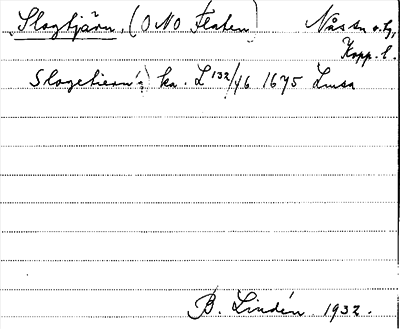 Slogtjärn, (ONO Flaten) Nås sn o. hd,
Kopp. l.
Slogetiern ka. L 132/46 1675 Lmsa
B. Lindén 1932.